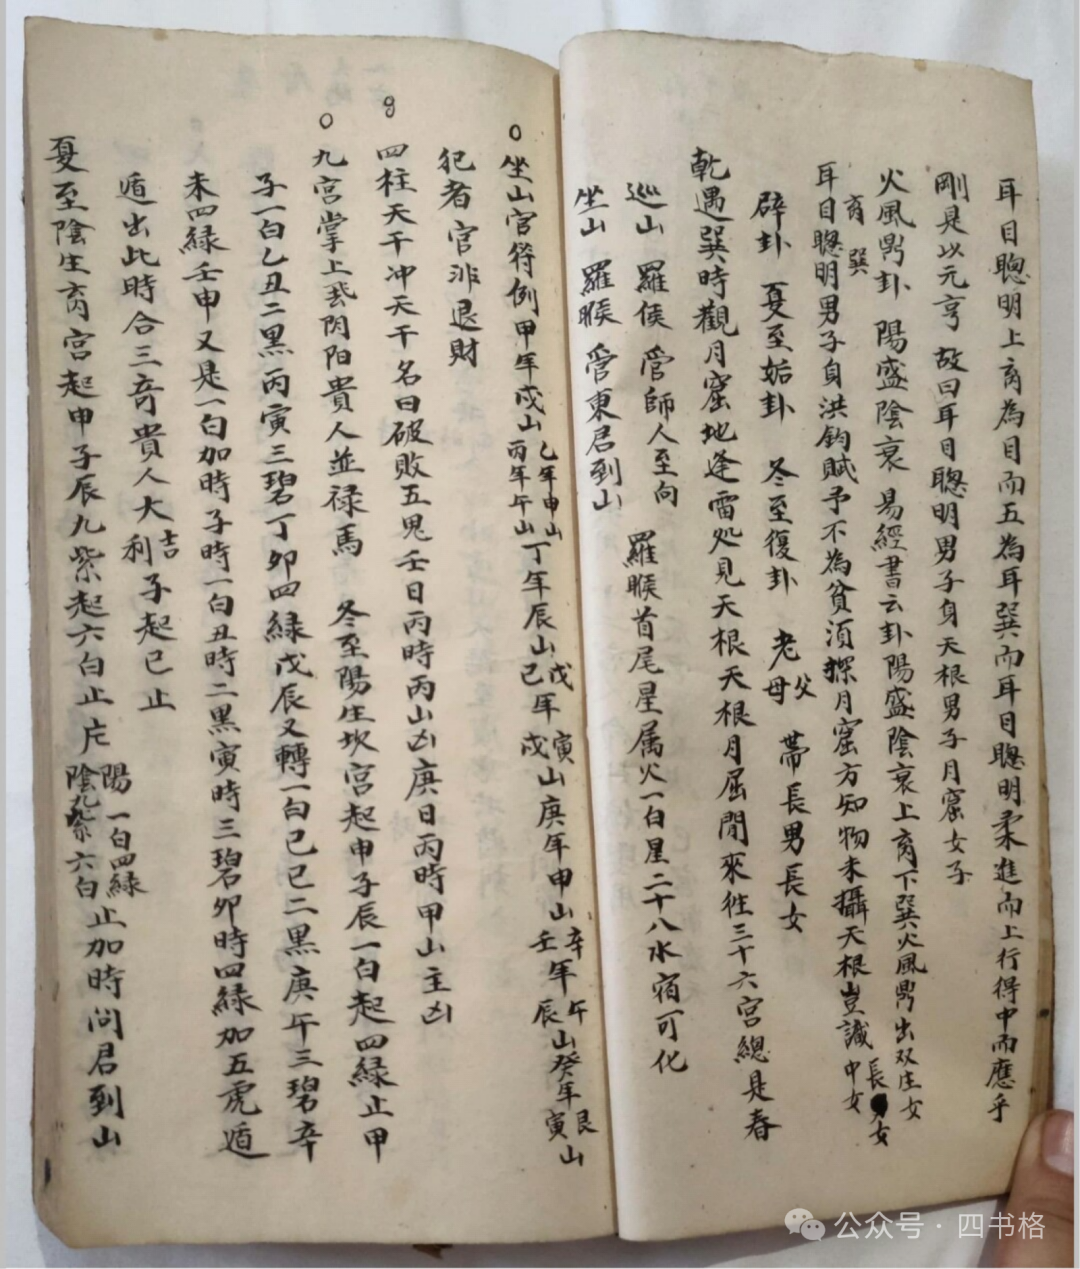 耳目聰明上离為目而五為耳巽而耳目聰明柔進而上行得中而應乎
剛是以元亨 故曰耳目聰明男子身天根男子月窟女子
火風鼎卦 陽盛陰衰 易經書云卦陽盛陰衰上离下巽火風鼎出双庄女
离巽
耳目聰明男子身洪鈞賦予不為貧須探月窟方知物未攝天根豈識中女長女
辟卦 夏至姤卦 冬至復卦 老父母 帶長男長女
乾遇巽時觀月窟地逢雷処見天根天根月屈閒來徃三十六宮總是春
巡山 羅侯 管師人至向 羅睺首尾星属火一白星二十八水宿可化
坐山 羅睺 管東君到山
坐山官符例甲年戌山乙年申山丙年午山丁年辰山戊寅己年戌山庚年申山辛午壬年辰山癸年艮寅山
犯者官非退財
四柱天干冲天干名曰破敗五鬼壬日丙時丙山凶庚日丙時甲山主凶
九宮掌上飛阴阳貴人並禄馬 冬至陽生坎宮起申子辰一白起四緑止甲
子一白乙丑二黑丙寅三碧丁卯四緑戊辰又轉一白己巳二黑庚午三碧辛
未四緑壬申又是一白加時子時一白丑時二黑寅時三碧卯時四緑加五虎遁
遁出此時合三竒貴人大吉利子起巳止
夏至陰生离宮起申子辰九紫起六白止 陽一白四緑陰九紫六白止加時问君到山
公众号·四书格